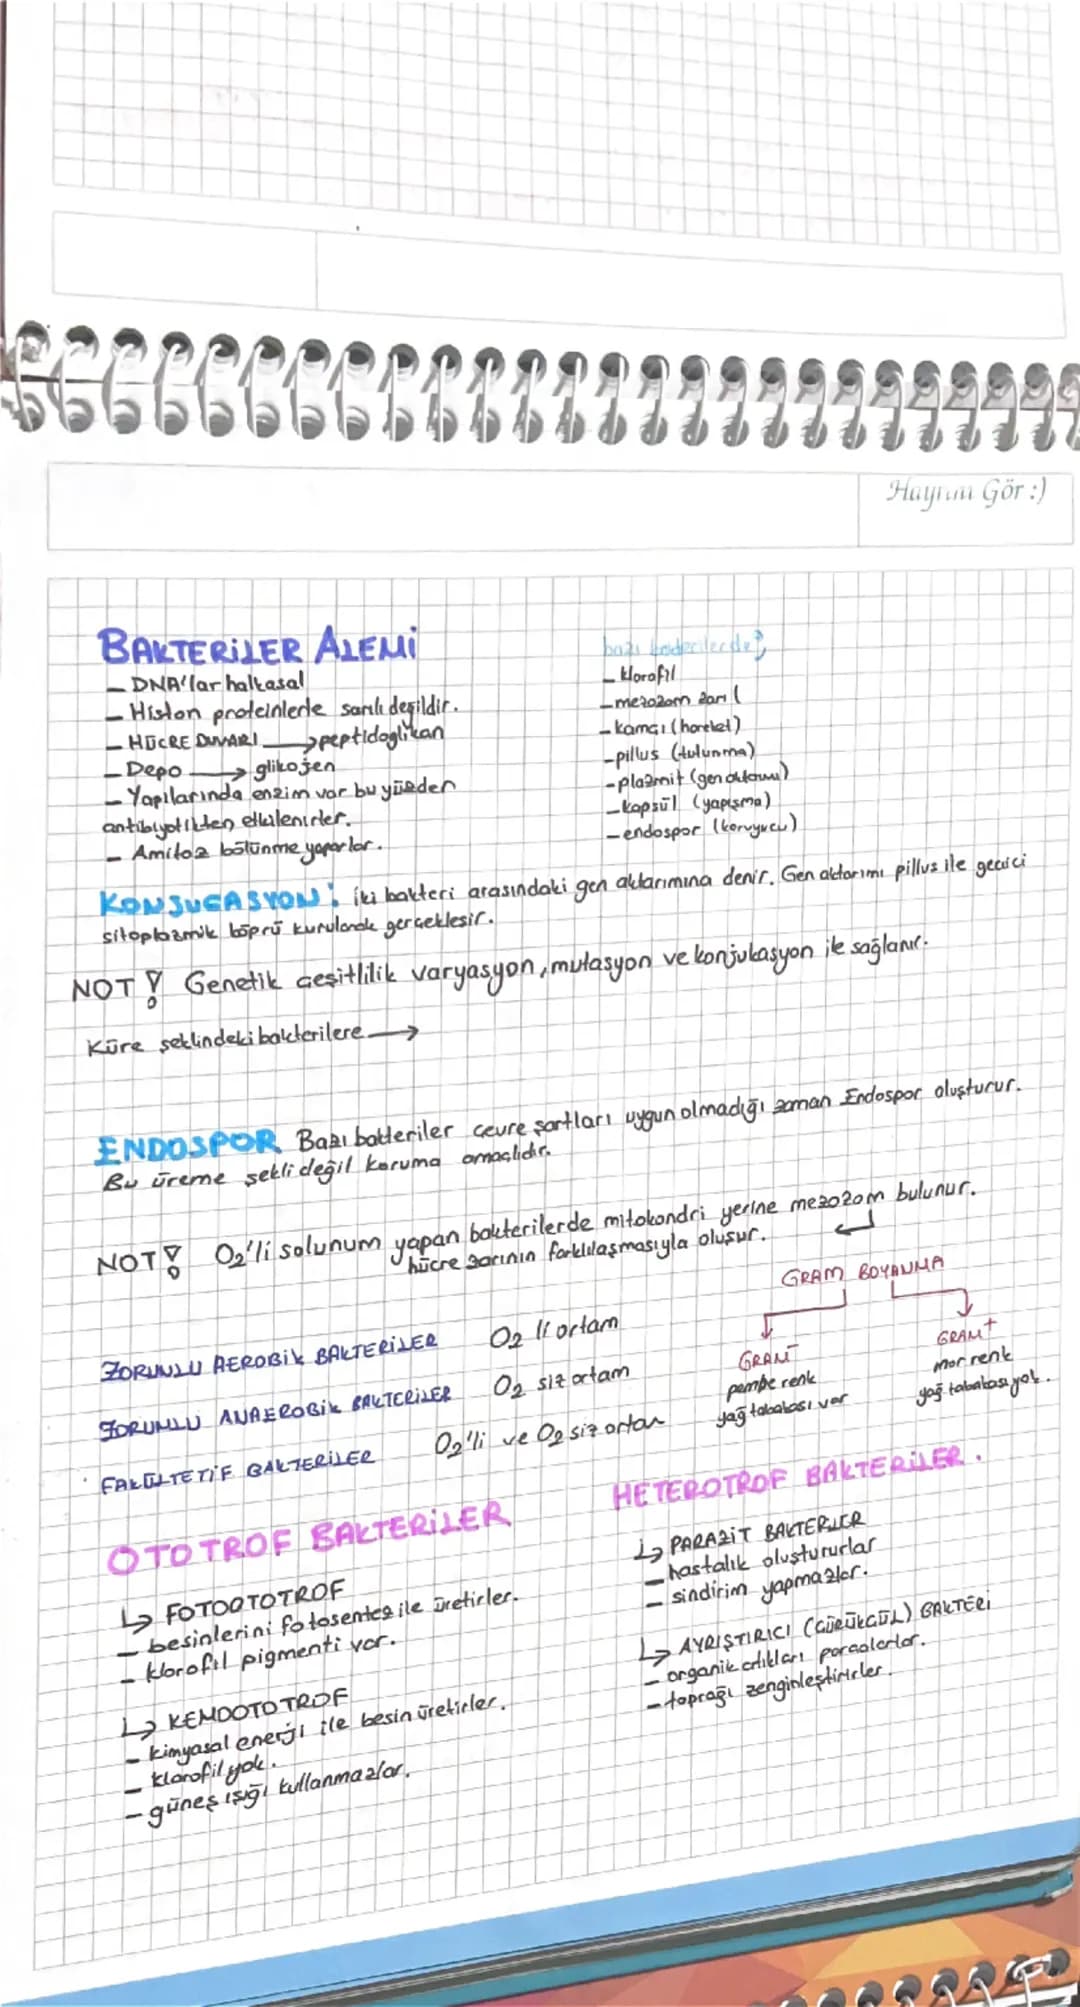 Hayrını Gör :)
BAKTERİLER ALEMİ
- DNA'lar halkasal
- Histon proteinlerle sarılı değildir.
- HÜCRE DUVARI → peptidoglikan
- Depo → glikojen
- Yapılarında enzim var bu yüzden
antibiyotikten etkilenirler.
- Amitoz bölünme yaparlar.
bazı bakterilerde;
- klorofil
- mezozom zarı (
- kamçı (hareket)
- pillus (tutunma)
- plazmit (gen aktarımı)
- kapsül (yapışma)
- endospor (koruyucu)
KONJUGASYON: İki bakteri arasındaki gen aktarımına denir. Gen aktarımı pillus ile gecici
sitoplazmik köprü kurularak gerçekleşir.
NOT! Genetik çeşitlilik varyasyon, mutasyon ve konjukasyon ile sağlanır.
Küre şeklindeki bakterilere →
ENDOSPOR Bazı bakteriler cevre şartları uygun olmadığı zaman Endospor oluşturur.
Bu üreme şekli değil koruma amaçlıdır.
NOT! O2'li solunum yapan bakterilerde mitokondri yerine mezozom bulunur.
hücre zarının farklılaşmasıyla oluşur.
GRAM BOYANMA
GRAM-
pembe renk
yağ tabakası var
GRAM+
mor renk
yağ tabakası yok.
ZORUNLU AEROBİK BAKTERİLER O2 li ortam
ZORUNLU ANAEROBİK BAKTERİLER O2 siz ortam
FAKÜLTETİF BAKTERİLER O2'li ve O2 siz ortam
OTOTROF BAKTERİLER
↳ FOTOOTOTROF
- besinlerini fotosentez ile üretirler.
- klorofil pigmenti var.
↳ KEMOOTOTROF
- kimyasal enerji ile besin üretirler.
- klorofil yok.
- güneş ışığı kullanmazlar.
HETEROTROF BAKTERİLER.
↳ PARAZİT BAKTERİLER
- hastalık oluştururlar
- sindirim yapmazlar.
↳ AYRIŞTIRICI (ÇÜRÜKÇÜL) BAKTERİ
- organik atıkları parçalarlar.
- toprağı zenginleştirirler.